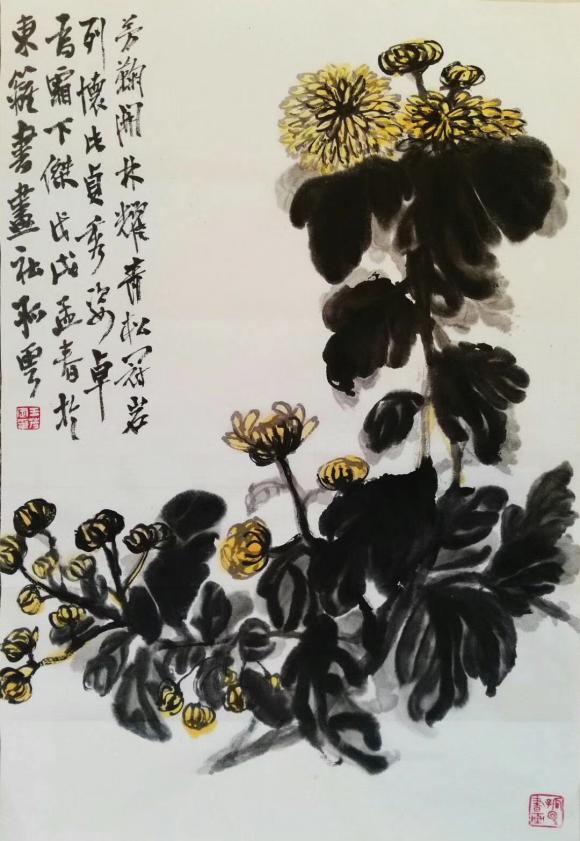 芳鞠開林耀青松冠岩
列懷此貞秀姿卓
為霜下傑戊戌孟春於
東籬書畫社孤雲